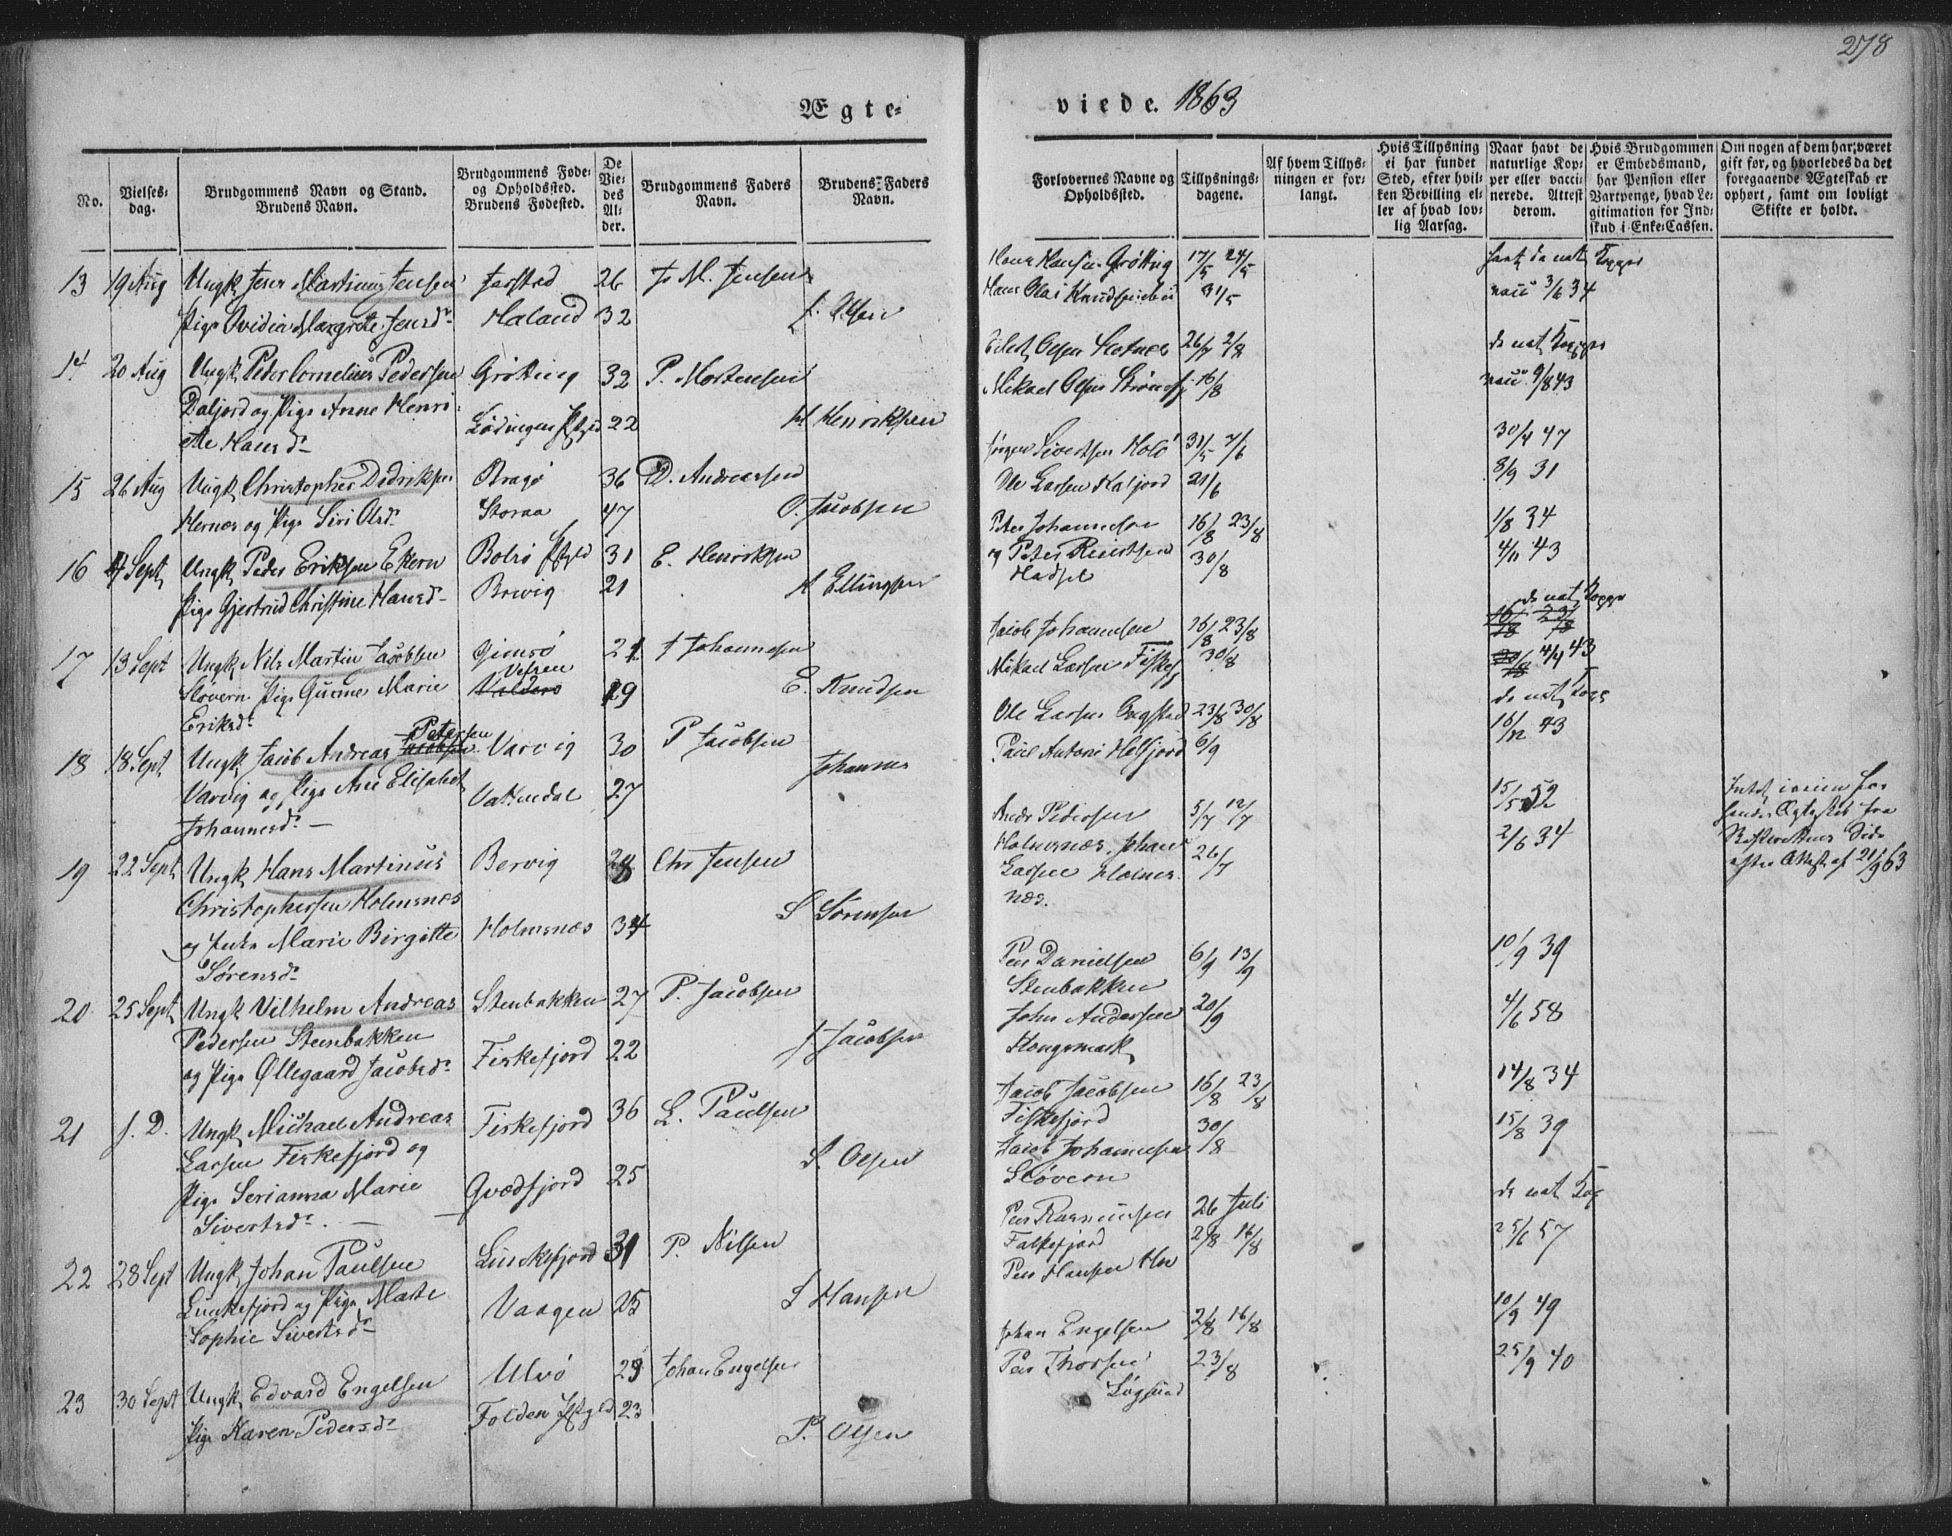 278
Ægte-
viede. 1863
No.
Vielses-
dag.
Brudgommens Navn og Stand.
Brudens Navn.
Brudgommens Føde-
og Opholdssted.
Brudens Fødested.
De
Vie-
des
Al-
der.
Brudgommens Faders
Navn.
Brudens Faders
Navn.
Forlovernes Navne og
Opholdssted.
Tillysnings-
dagene.
Af hvem Tillys-
ningen er for-
langt.
Hvis Tillysning
ei har fundet
Sted, efter hvil-
ken Bevilling el-
ler af hvad lov-
lig Aarsag.
Naar havt de
naturlige Kop-
per eller vacci-
nerede. Attest
derom.
Hvis Brudgommen
er Embedsmand,
har Pension eller
Vartpenge, hvad Le-
gitimation for Ind-
skud i Enke-Cassen.
Om nogen af dem har været
gift før, og hvorledes da det
foregaaende Ægteskab er
ophørt, samt om lovligt
Skifte er holdt.
13 19 Aug Ungk Jens Martinus Jensen Jarstad 26 J. M. Jensen
Pige Ovidia Margrete Jensd. Haland 32 J. Olsen
Hans Hansen Grøtting 17/5 24/5 havt de nat Kopper
Hans Olai Knudsen 31/5 vacc 3/6 34
14 20 Aug Ungk Peder Cornelius Pedersen Grøtting 32 P. Mortensen
Daljord og Pige Anne Henri-
ette Hansd. Lødingen Pgjd 22 H Henriksen
Olsen 26/7 2/8 de nat Kopper
Mikael Olsen 16/8 vacc 9/8 43
15 26 Aug Ungk Christopher Dedriksen Bragø 36 D. Andreassen
Hernæs og Pige Siri Olsd. Storaa 47 O. Jacobsen
Jørgen Sivertsen Holø 31/5 7/6 30/4 47
Ole Larsen Haljord 21/6 8/9 31
16 4 Sept Ungk Peder Eriksen Ekern Bolsø Pgjd 31 E. Henriksen
Pige Gjertrud Christine Hansd. Brevig 21 H Ellingsen
Peter Johannesen 16/8 23/8 1/8 34
og Peter Reinertsen 30/8 4/11 43
Hadsel
17 13 Sept Ungk Nils Martin Jacobsen Gimsø 21 J Johannesen
Sløvern Pige Gurine Marie Vefsen 19 E. Knudsen
Eriksd.
Jacob Johannesen 16/8 23/8 de nat Kopper
Mikael Larsen Fiskefj 30/8 4/4 43
18 18 Sept Ungk Jacob Andreas Petersen Varvig 30 P Jacobsen
Varvig og Pige Ane Elisabet Vattendal 27 Johannes
Johannesd.
Ole Larsen 23/8 30/8 de nat Kopp
Paul Antoni Helfjord 6/9 16/12 43
19 22 Sept Ungk Hans Martinus Bervig 28 Chr Jensen
Christophersen Holmsnæs
og Enke Marie Birgitte Holmsnæs 34 S Sørensen
Sørensd.
Andr Pedersen 5/7 12/7 15/5 52
Holmsnæs. Johan 26/7 2/6 34
Larsen Holmes-
næs.
20 25 Sept Ungk Vilhelm Andreas Stenbakken 27 P. Jacobsen
Pedersen Stenbakken
og Pige Øllegaard Jacobsd. Fiskefjord 22 J Jacobsen
Peer Danielsen 6/9 13/9 10/9 39
Stenbakken
John Andersen 20/9 4/6 58
Kongsmark
21 s. D. Ungk Michael Andreas Fiskefjord 36 L. Paulsen
Larsen Fiskefjord og
Pige Serianna Marie Gvædfjord 25 S. Olsen
Sivertsd.
Jacob Jacobsen 16/8 23/8 14/8 34
Fiskefjord 30/8
Jacob Johannesen 15/8 39
Sløvern
22 28 Sept Ungk Johan Paulsen Lunkefjord 31 P. Nilsen
Lunkefjord og Pige Mate Vaagen 25 S Hansen
Sophie Sivertsd.
Peer Rasmussen 26 Juli de nat Kop
Falkefjord 2/8 16/8 25/6 57
Peer Hansen Hm
23 30 Sept Ungk Edvard Engelsen Ulvø 29 Johan Engelsen
Pige Karen Pedersd. Folden Pgjd 23 P. Olsen
Johan Engelsen 2/8 16/8 10/9 49
Peer Thorsen 23/8 25/9 40